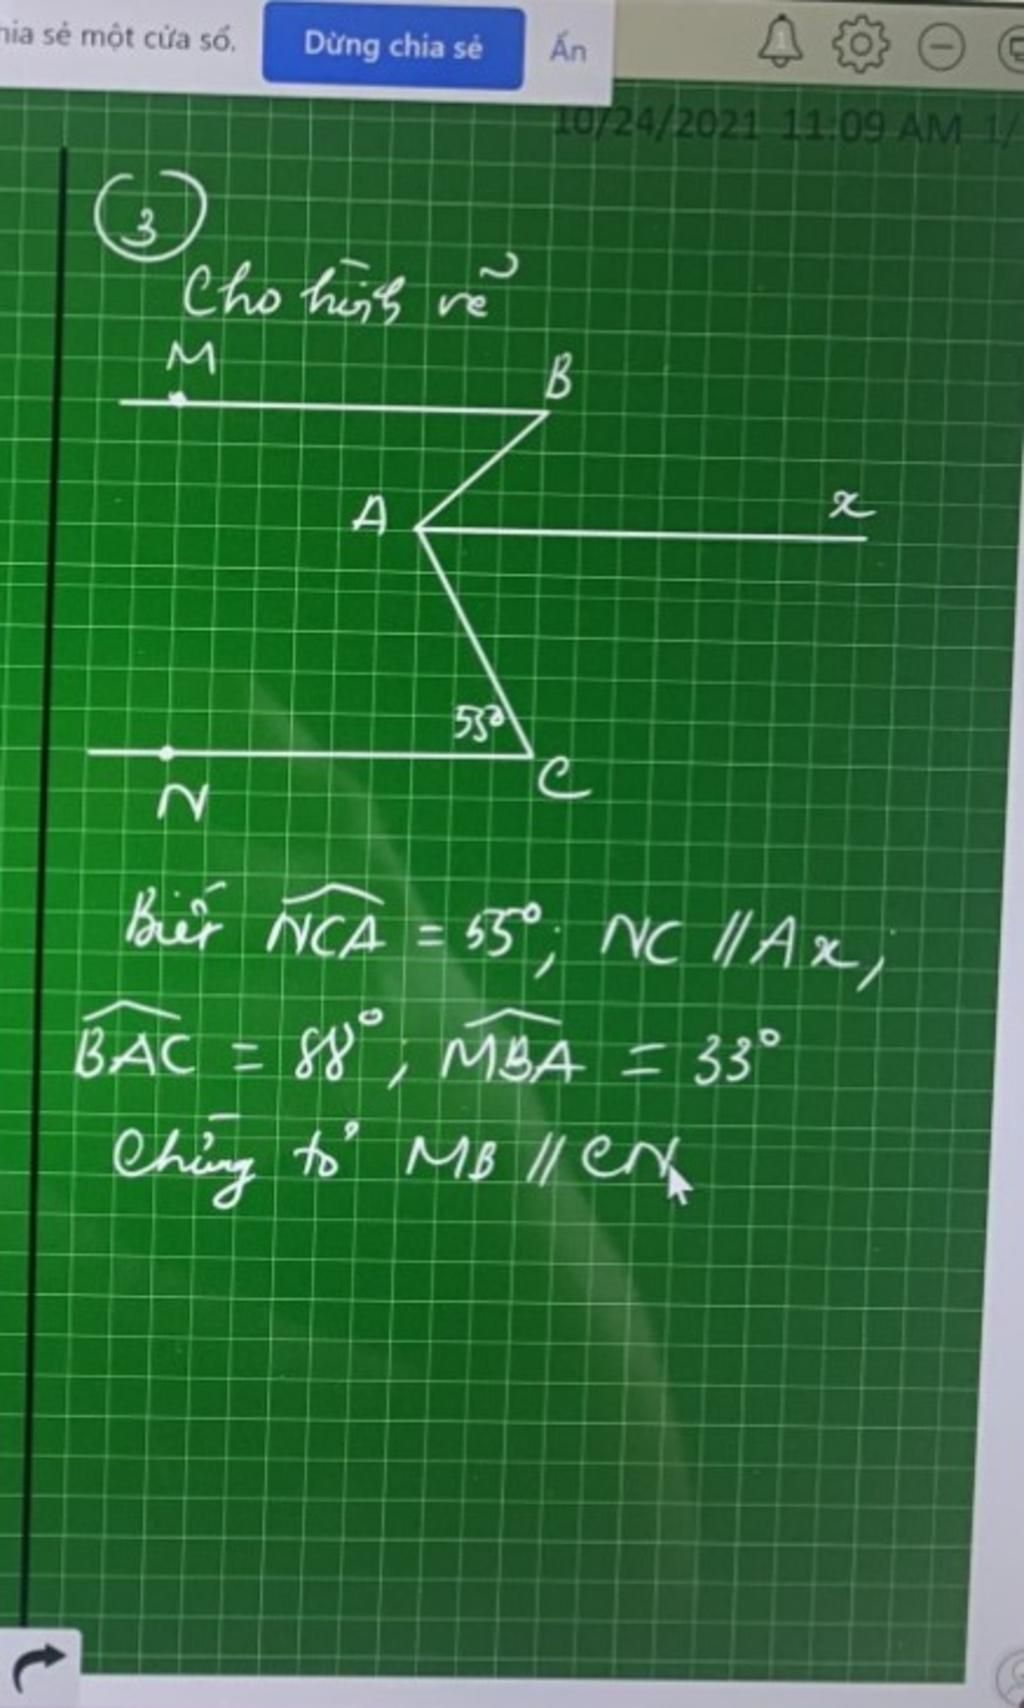 hia sẻ một cửa sổ. Dừng chia sẻ Ẩn
10/24/2021 11:09 AM 1/
3
Cho hình vẽ
M
B
A
x
55°
C
N
Biết NCA = 55°; NC // Ax;
BAC = 88°; MBA = 33°
Chứng tỏ MB // CN